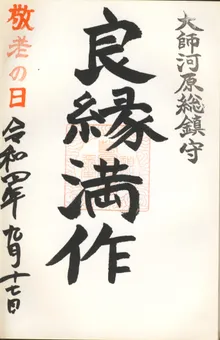 大師河原総鎮守
良縁満作
敬老の日
令和四年九月十七日